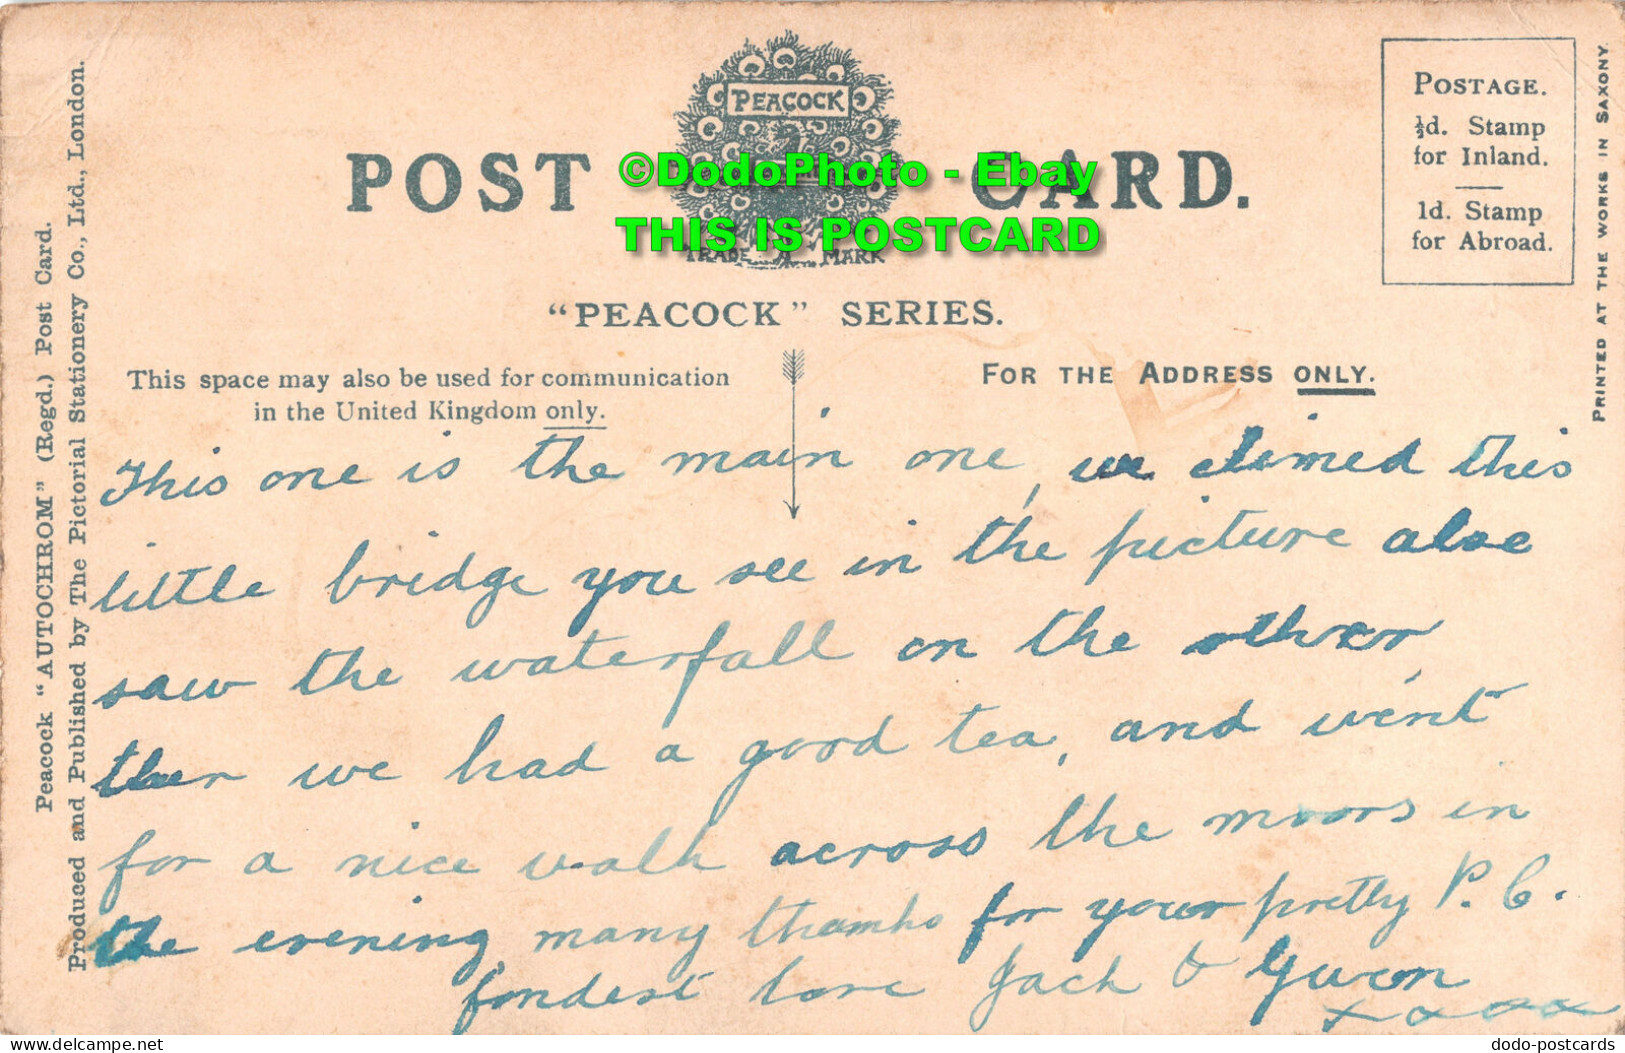 PEACOCK
POST CARD.
TRADE MARK
©DodoPhoto - Ebay
THIS IS POSTCARD
"PEACOCK" SERIES.
POSTAGE.
½d. Stamp
for Inland.
1d. Stamp
for Abroad.
PRINTED AT THE WORKS IN SAXONY
This space may also be used for communication
in the United Kingdom only.
FOR THE ADDRESS ONLY.
Peacock "AUTOCHROM" (Regd.) Post Card.
Produced and Published by The Pictorial Stationery Co., Ltd., London.
This one is the main one, we climed this
little bridge you see in the picture also
saw the waterfall on the other,
then we had a good tea, and went
for a nice walk across the moors in
the evening, many thanks for your pretty P.C.
fondest love Jack & Gwen
xxxxx
https://www.delcampe.net
dodo-postcards